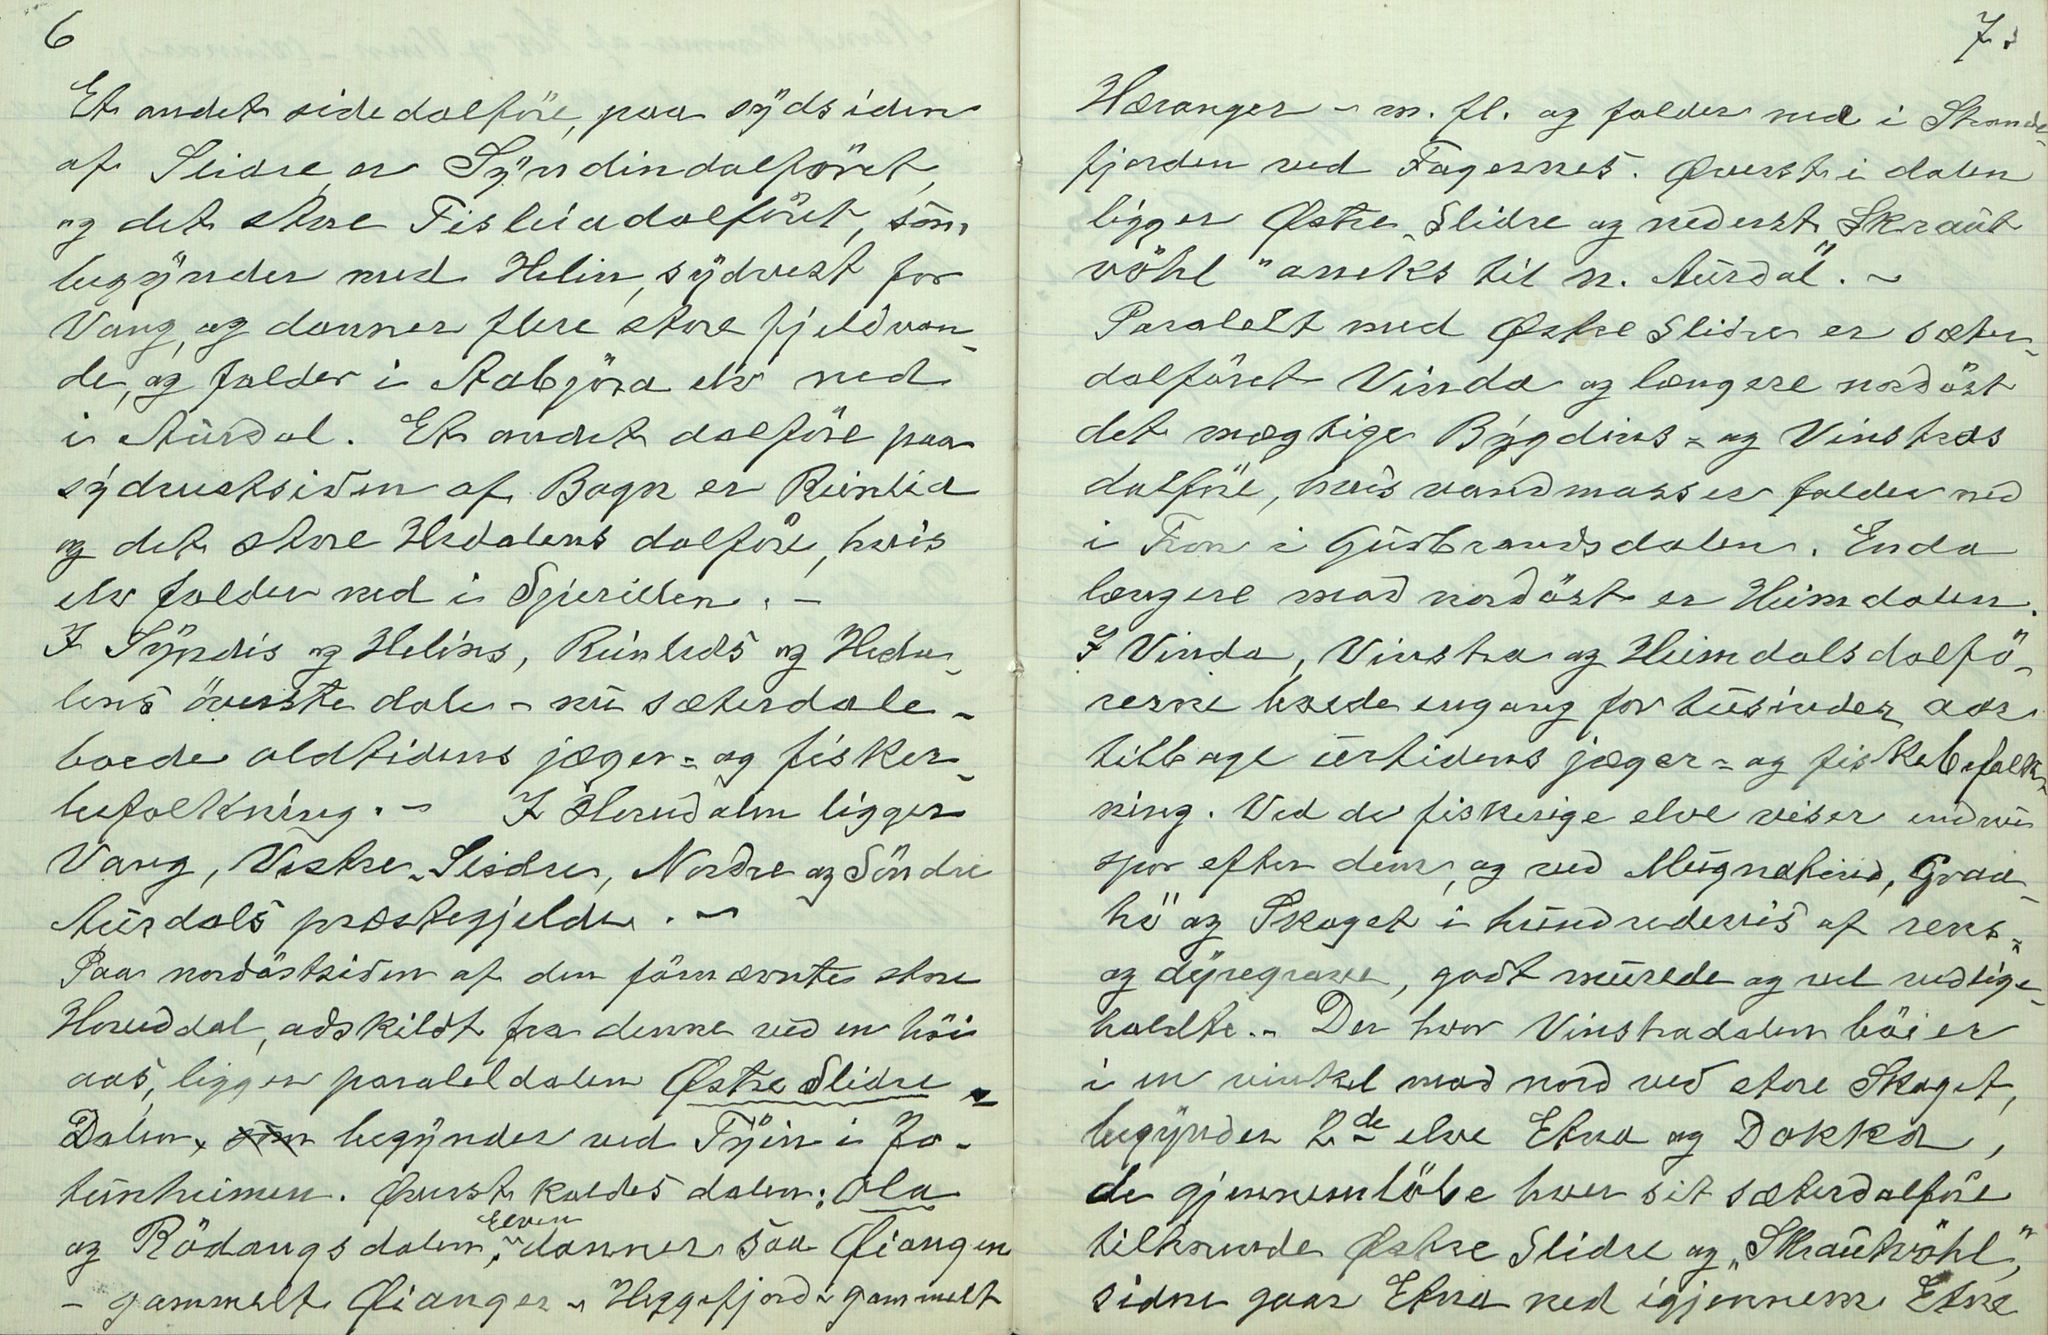 6
Et andet sidedalföre, paa sydsiden
af Slidre er Syndindalföret,
og det store Fisleiadalföret, som
begynder med Helin, sydvest for
Vang, og danner flere store fjeldvan-
de, og falder i Aabjöra elv ned
i Aurdal. Et andet dalföre paa
sydvestsiden af Bagn er Reinlid
og det store Hedalens dalföre, hvis
elv falder ned i Spirillen. -
I Syndis og Helins, Reinlids og Heda-
lens överste dale - nu sæterdale -
boede oldtidens jæger- og fisker-
befolkning. - I Hovedalen ligger
Vang, Vestre-Slidre, Nordre og Söndre
Aurdals præstegjelde. -
Paa nordöstsiden af denförnævnte store
Hoveddal, adskildt fra denne ved en höi
aas, ligger paraleldalen Östre Slidre -
Dalen, som begynder ved Tyin i Jo-
tunheimen. Överst kaldes dalen: Ola
og Rödangsdalen, Elven danner saa Öiangen
- gammelt Öianger - Heggefjord - gammelt
7.
Hæranger - m. fl. og falder ned i Strande-
fjorden ved Fagernes. Överst i dalen
ligger Östre-Slidre og nederst Skraut
vöhl "aneks til n. Aurdal". -
Paralelt med Östre Slidre er sæter-
dalföret Vinda og længere nordöst
det mægtige Bygdins- og Vinstras
dalföre, hvis vandmasser falder ned
i Fron i Gudbrandsdalen. Enda
længere mod nordöst er Heimdalen.
I Vinda, Vinstra og Heimdalsdalfö-
rerne boede engang for tusinder aar
tilbage urtidens jæger- og fiskebefolk-
ning. Ved de fiskerige elve viser endnu
spor efter dem, og ved Mugnatind, Graa-
hö og Skaget i hundredevis af rens-
og dyregrave, godt murede og vel vedlige-
holdte. - Der hvor Vinstradalen böier
i en vinkel mod nord ved store Skaget,
begynder 2de elve Etna og Dokka,
de gjennemlöbe hver sit sæterdalföre
tilhørende Östre Slidre og "Skrautvöhl",
siden gaar Etna ned igjennem Etne